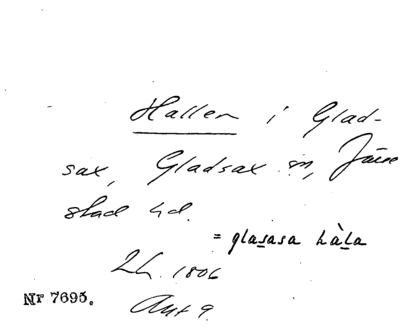 Hallen i Glad-
sax, Gladsax sn, Järre
stad hd.
= glasasa hàla
LL. 1806
Ant 9
Nr 7695.